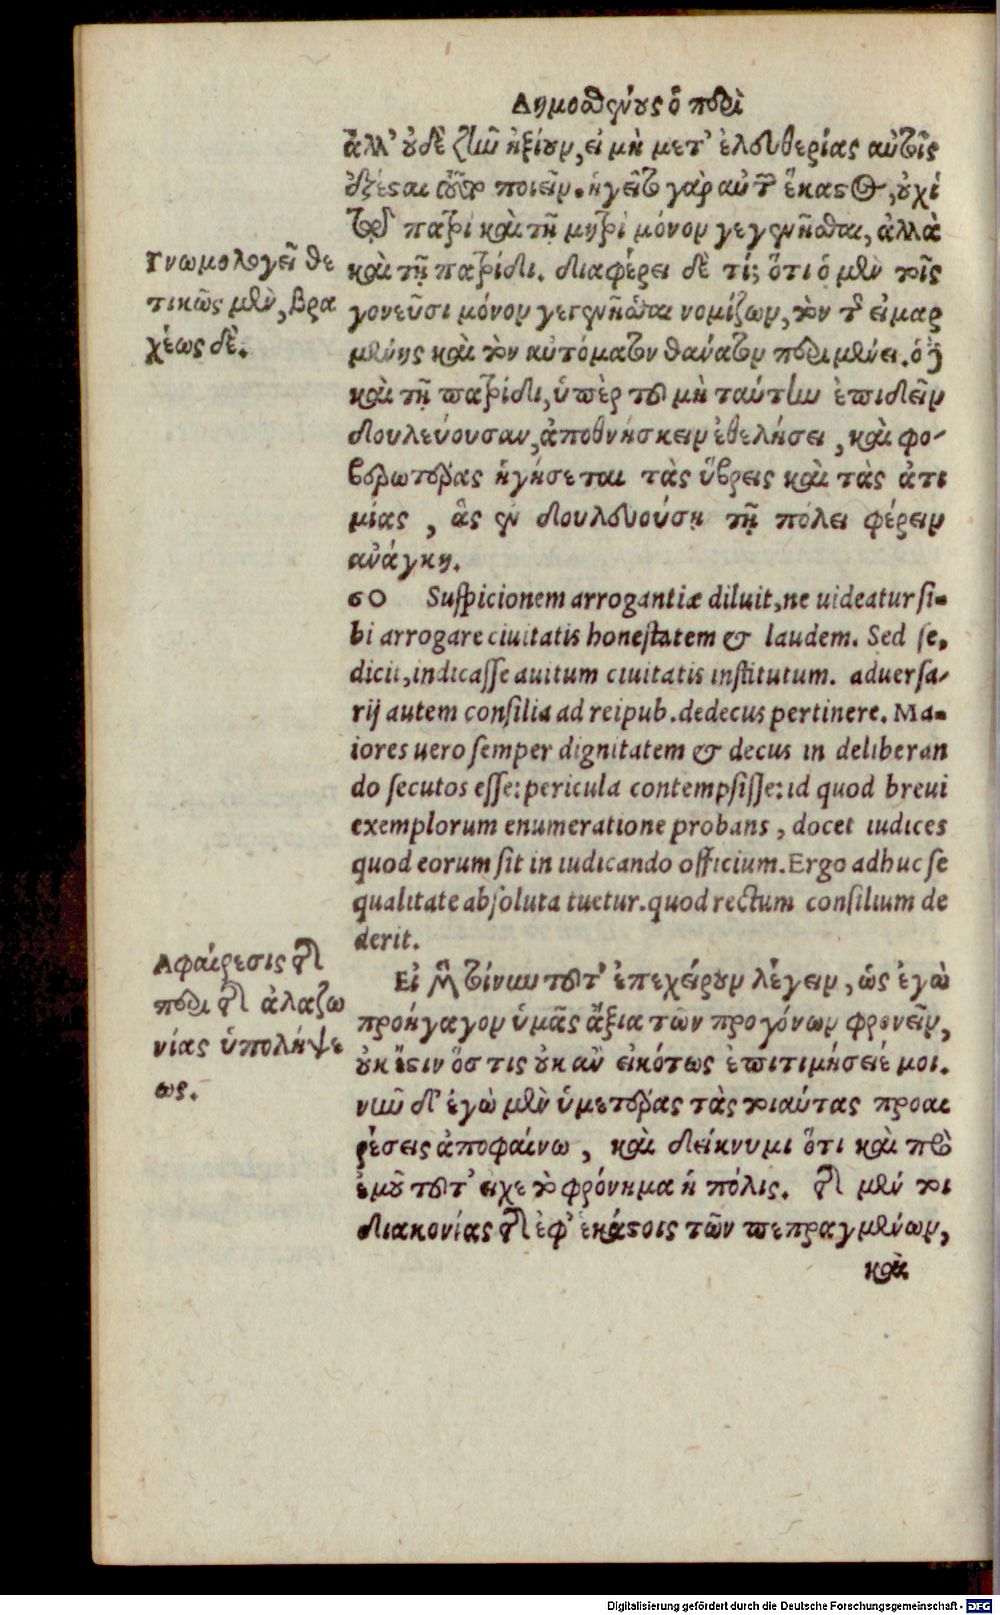 Δημοσθένους ὁ περὶ
ἀλλ' οὐδὲ ζῆν ἠξίουν, εἰ μὴ μετ' ἐλευθερίας αὐτοῖς
ἐξέσται τοῦτο ποιεῖν. ἡγεῖτο γὰρ αὐτῶν ἕκαστος, οὐχὶ
τῷ πατρὶ καὶ τῇ μητρὶ μόνον γεγενῆσθαι, ἀλλὰ
Γνωμολογεῖ θε
τικῶς μὲν, βρα
χέως δέ.
καὶ τῇ πατρίδι. διαφέρει δὲ τί; ὅτι ὁ μὲν τοῖς
γονεῦσι μόνον γεγενῆσθαι νομίζων, τὸν τῆς εἱμαρ
μένης καὶ τὸν αὐτόματον θάνατον περιμένει. ὁ δὲ
καὶ τῇ πατρίδι, ὑπὲρ τοῦ μὴ ταύτην ἐπιδεῖν
δουλεύουσαν, ἀποθνήσκειν ἐθελήσει, καὶ φο-
βερωτέρας ἡγήσεται τὰς ὕβρεις καὶ τὰς ἀτι
μίας, ἃς ἐν δουλευούσῃ τῇ πόλει φέρειν
ἀνάγκη.
60 Suspicionem arrogantiæ diluit, ne uideatur si-
bi arrogare ciuitatis honestatem & laudem. Sed se,
dicit, indicasse auitum ciuitatis institutum. aduersa-
rij autem consilia ad reipub. dedecus pertinere. Ma-
iores uero semper dignitatem & decus in deliberan
do secutos esse: pericula contempsisse: id quod breui
exemplorum enumeratione probans, docet iudices
quod eorum sit in iudicando officium. Ergo adhuc se
qualitate absoluta tuetur. quod rectum consilium de
derit.
Ἀφαίρεσις τῆς
περὶ τῆς ἀλαζο
νίας ὑπολήψε
ως.
Εἰ μὲν τοίνυν τοῦτ' ἐπεχείρουν λέγειν, ὡς ἐγὼ
προήγαγον ὑμᾶς ἄξια τῶν προγόνων φρονεῖν,
οὐκ ἔστιν ὅστις οὐκ ἂν εἰκότως ἐπιτιμήσειέ μοι.
νῦν δ' ἐγὼ μὲν ὑμετέρας τὰς τοιαύτας προαι
ρέσεις ἀποφαίνω, καὶ δείκνυμι ὅτι καὶ πρὸ
ἐμοῦ τοῦτ' εἶχε τὸ φρόνημα ἡ πόλις. τῆς μέν τοι
διακονίας τῆς ἐφ' ἑκάστοις τῶν πεπραγμένων,
καὶ
Digitalisierung gefördert durch die Deutsche Forschungsgemeinschaft - DFG